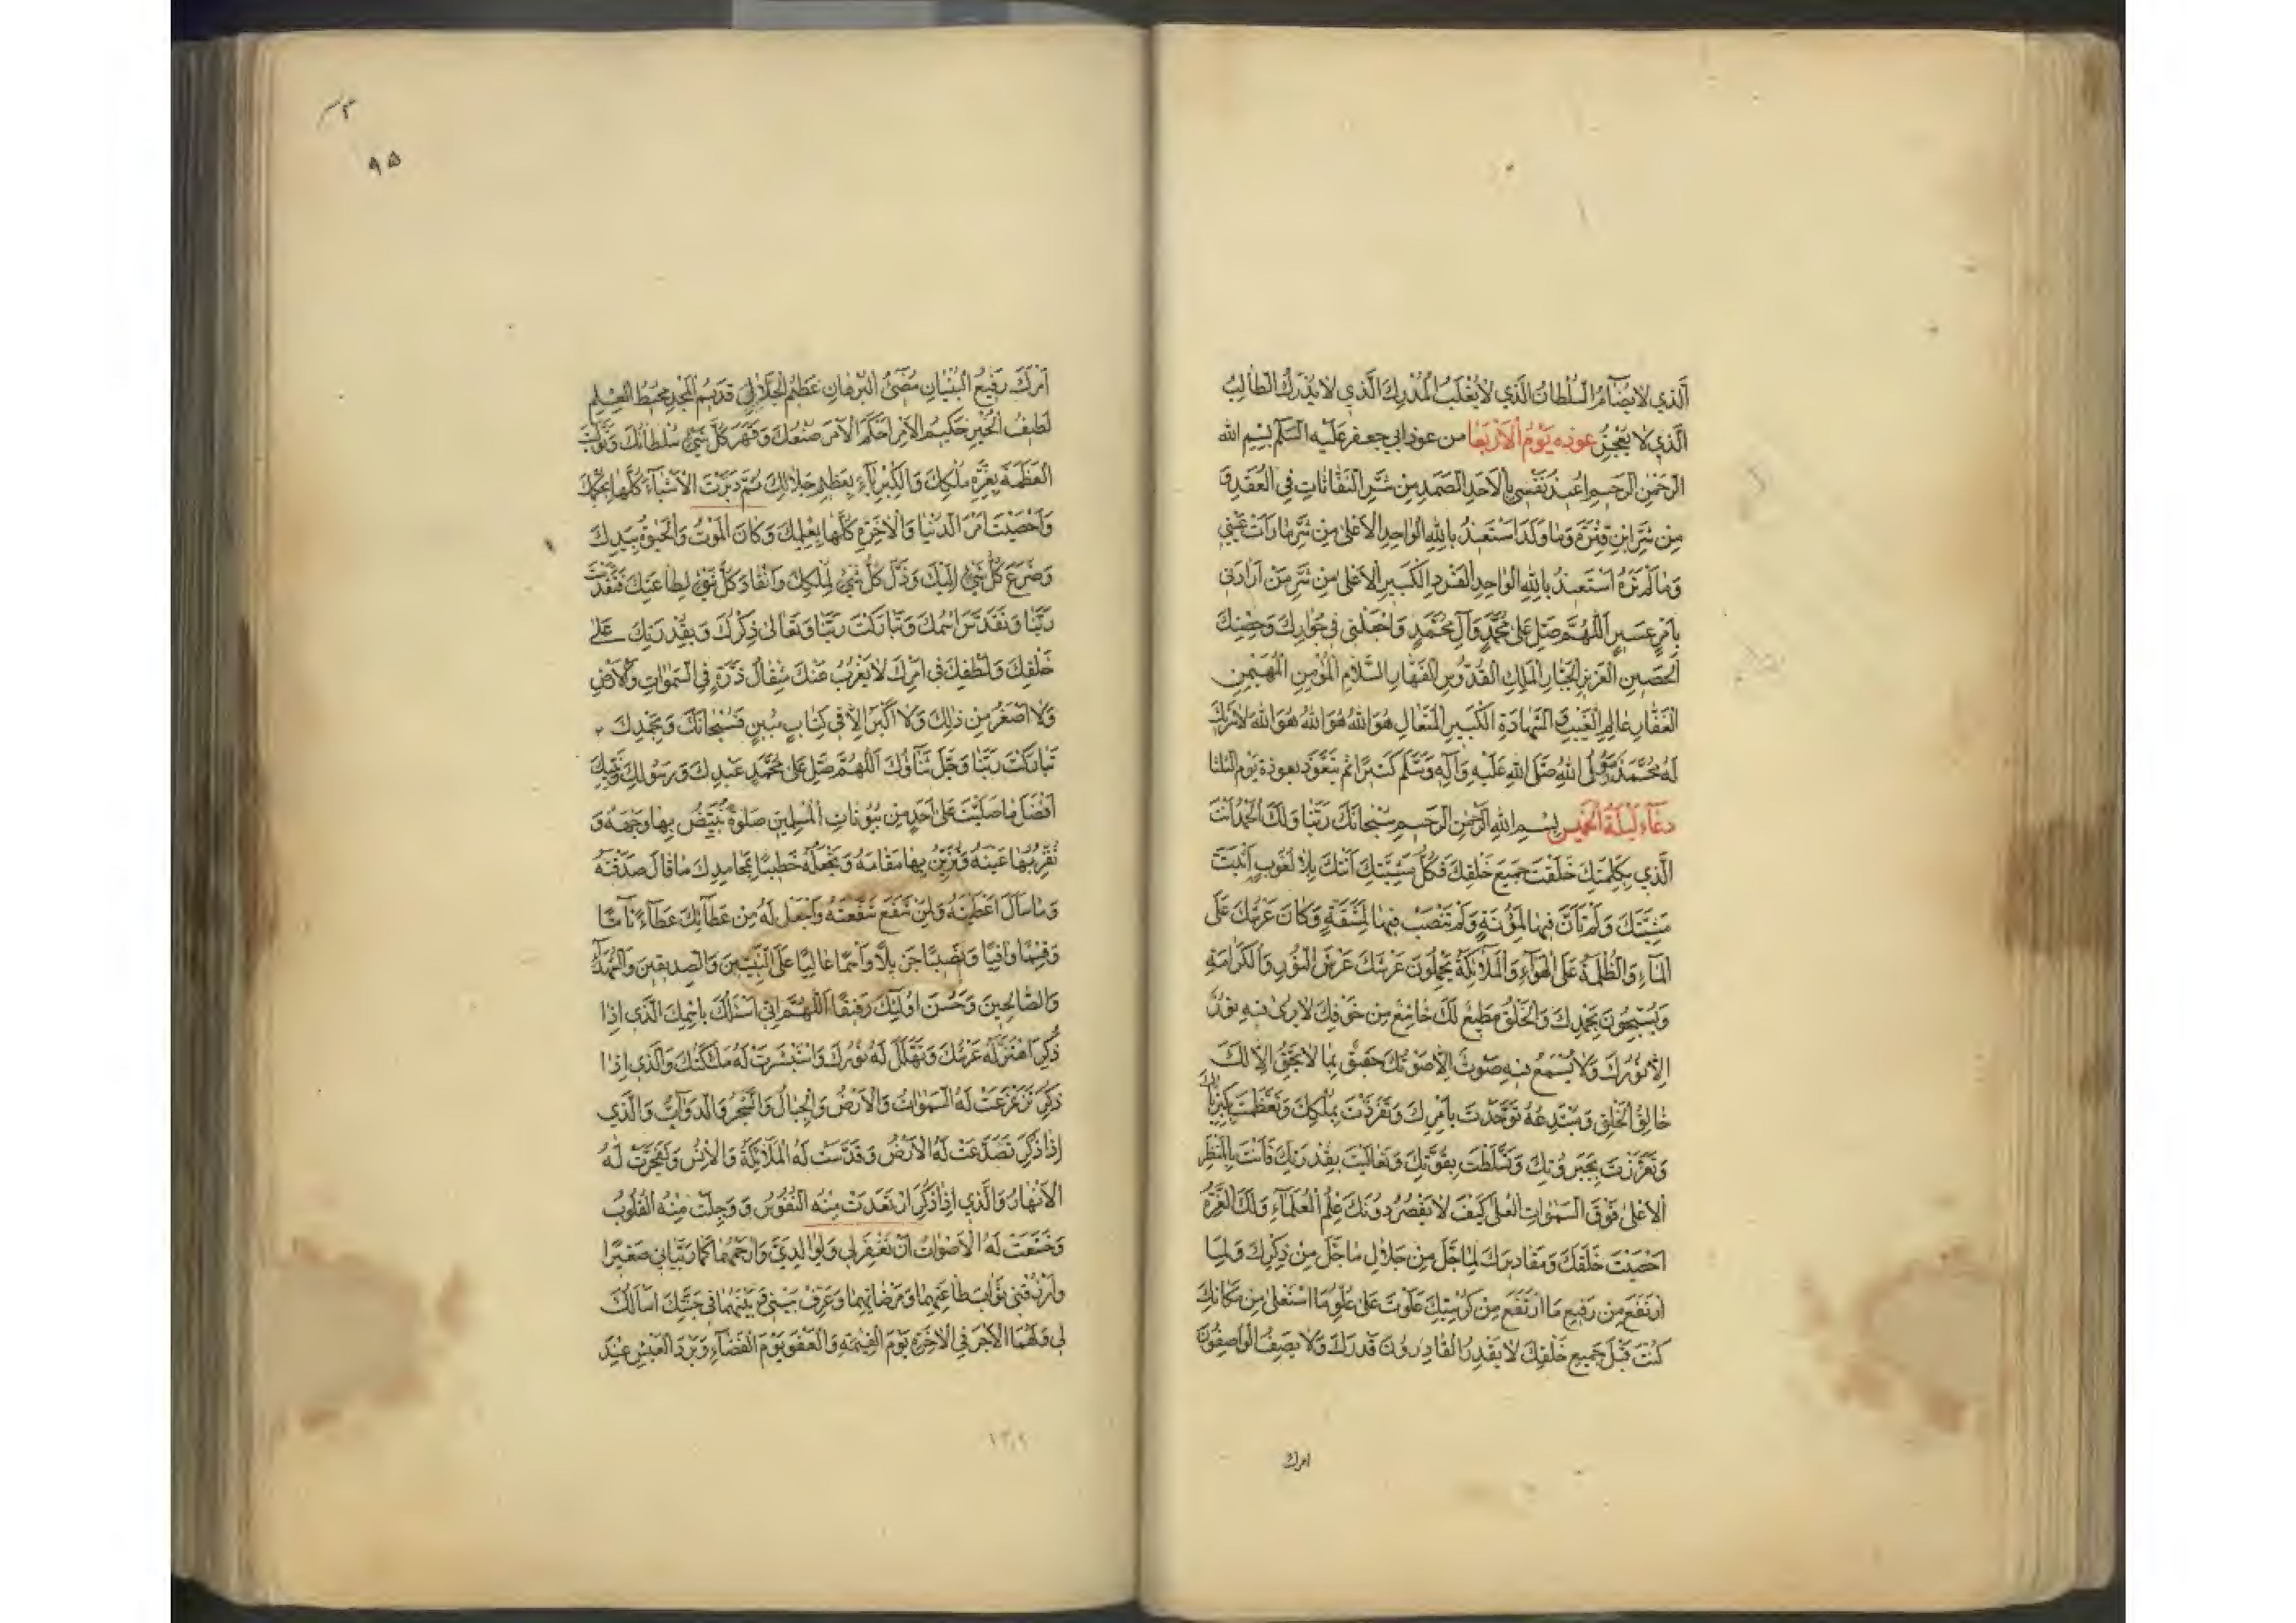 اَلَّذي لا يُضامُ السُّلطانُ الَّذي لا يُغْلَبُ الْمُدْرِكُ الَّذي لا يُدْرَكُ الطّالِبُ
الَّذي لا يَعْجِزُ عوذه يَوْمُ الْاَرْبَعا من عوذ ابي جعفر عَلَيْه السَّلم بِسْمِ الله
الرَّحْمنِ الرَّحيمِ اُعيذُ نَفْسي بِالْاَحَدِ الصَّمَدِ مِن شَرِّ النَّفّاثاتِ فِي الْعُقَدِ وَ
مِن شَرِّ ابنِ قِتْرَةَ وَما وَلَدَ اَسْتَعيذُ بِاللهِ الْواحِدِ الْاَعْلى مِن شَرِّ ما رَاَتْ عَيْني
وَما لَمْ تَرَهُ اَسْتَعيذُ بِاللهِ الْواحِدِ الْفَرْدِ الْكَبيرِ الْاَعْلى مِن شَرِّ مَنْ اَرادَني
بِاَمْرٍ عَسيرٍ اَللّهُمَّ صَلِّ عَلى مُحَمَّدٍ وَآلِ مُحَمَّدٍ وَاجْعَلْني في جِوارِكَ وَحِصْنِكَ
الْحَصينِ الْعَزيزِ الْجَبّارِ الْمَلِكِ الْقُدّوسِ الْقَهّارِ السَّلامِ الْمُؤْمِنِ الْمُهَيْمِنِ
الْغَفّارِ عالِمِ الْغَيْبِ وَالشَّهادَةِ الْكَبيرِ الْمُتَعالِ هُوَ اللهُ هُوَ اللهُ هُوَ اللهُ لا شَريكَ
لَهُ مُحَمَّدٌ رَسُولُ اللهِ صَلَّى اللهُ عَلَيْهِ وَآلِهِ وَسَلَّم كَثيرًا ثم يتعوذ بعوذة يوم الثلثا
دعاء لَيْلَةُ الْخَميسِ بِسْمِ اللهِ الرَّحْمنِ الرَّحيمِ سُبْحانَكَ رَبَّنا وَلَكَ الْحَمْدُ اَنْتَ
الَّذي بِكَلِمَتِكَ خَلَقْتَ جَميعَ خَلْقِكَ فَكُلُّ مَشِيَّتِكَ اَتَتْكَ بِلا لُغُوبٍ اَثْبَتَّ
مَشِيَّتَكَ وَلَمْ تَأَنَّ فيها لِمَؤُنَةٍ وَلَمْ تَنْصَبْ فيها لِمَشَقَّةٍ وَكانَ عَرْشُكَ عَلَى
الْماءِ وَالظُّلْمَةُ عَلَى الْهَواءِ وَالْمَلائِكَةُ يَحْمِلُونَ عَرْشَكَ عَرْشَ النُّورِ وَالْكَرامَةِ
وَيُسَبِّحُونَ بِحَمْدِكَ وَالْخَلْقُ مُطيعٌ لَكَ خاشِعٌ مِن خَوْفِكَ لا يُرى فيهِ نُورٌ
اِلّا نُورُكَ وَلا يُسْمَعُ فيهِ صَوْتٌ اِلّا صَوْتُكَ حَقيقٌ بِما لا يَحِقُّ اِلّا لَكَ
خالِقُ الْخَلْقِ وَمُبْتَدِعُهُ تَوَحَّدْتَ بِاَمْرِكَ وَتَفَرَّدْتَ بِمُلْكِكَ وَتَعَظَّمْتَ بِكِبْرِيائِكَ
وَتَعَزَّزْتَ بِجَبَرُوتِكَ وَتَسَلَّطْتَ بِقُوَّتِكَ وَتَعالَيْتَ بِقُدْرَتِكَ فَاَنْتَ بِالْمَنْظَرِ
الْاَعْلى فَوْقَ السَّمواتِ الْعُلى كَيْفَ لا يَقْصُرُ دُونَكَ عِلْمُ الْعُلَماءِ وَلَكَ الْعِزَّةُ
اَحْصَيْتَ خَلْقَكَ وَمَقاديرَكَ لِما جَلَّ مِن جَلالِ ما جَلَّ مِن ذِكْرِكَ وَلِما
ارْتَفَعَ مِن رَفيعِ مَا ارْتَفَعَ مِن كُرْسِيِّكَ عَلَوْتَ عَلى عُلُوِّ مَا اسْتَعْلى مِن مَكانِكَ
كُنْتَ قَبْلَ جَميعِ خَلْقِكَ لا يَقْدِرُ الْقادِرُونَ قَدْرَكَ وَلا يَصِفُ الْواصِفُونَ
امرك
۹۵
اَمْرَكَ رَفيعُ الْبُنْيانِ مُضيءُ الْبُرْهانِ عَظيمُ الْجَلالِ قَديمُ الْمَجْدِ مُحيطُ الْعِلْمِ
لَطيفُ الْخَبَرِ حَكيمُ الْاَمْرِ اَحْكَمَ الْاَمْرَ صُنْعُكَ وَقَهَرَ كُلَّ شَيْءٍ سُلْطانُكَ وَتَوَلَّيْتَ
الْعَظَمَةَ بِعِزَّةِ مُلْكِكَ وَالْكِبْرِياءَ بِعَظيمِ جَلالِكَ ثُمَّ دَبَّرْتَ الْاَشْياءَ كُلَّها بِحُكْمِكَ
وَاَحْصَيْتَ اَمْرَ الدُّنْيا وَالْاخِرَةِ كُلَّها بِعِلْمِكَ وَكانَ الْمَوْتُ وَالْحَيوةُ بِيَدِكَ
وَضَرَعَ كُلُّ شَيْءٍ اِلَيْكَ وَذَلَّ كُلُّ شَيْءٍ لِمُلْكِكَ وَانْقادَ كُلُّ شَيْءٍ لِطاعَتِكَ فَتَقَدَّسْتَ
رَبَّنا وَتَقَدَّسَ اسْمُكَ وَتَبارَكْتَ رَبَّنا وَتَعالى ذِكْرُكَ وَبِقُدْرَتِكَ عَلى
خَلْقِكَ وَلُطْفِكَ في اَمْرِكَ لا يَعْزُبُ عَنْكَ مِثْقالُ ذَرَّةٍ فِي السَّمواتِ وَالْاَرْضِ
وَلا اَصْغَرُ مِن ذلِكَ وَلا اَكْبَرُ اِلّا في كِتابٍ مُبينٍ فَسُبْحانَكَ وَبِحَمْدِكَ
تَبارَكْتَ رَبَّنا وَجَلَّ ثَناؤُكَ اَللّهُمَّ صَلِّ عَلى مُحَمَّدٍ عَبْدِكَ وَرَسُولِكَ وَنَبِيِّكَ
اَفْضَلَ ما صَلَّيْتَ عَلى اَحَدٍ مِن بُيُوتاتِ الْمُسْلِمينَ صَلوةً تُبَيِّضُ بِها وَجْهَهُ وَ
تُقِرُّ بِها عَيْنَهُ وَتُزَيِّنُ بِها مَقامَهُ وَتَجْعَلُهُ خَطيبًا بِمَحامِدِكَ ما قالَ صَدَّقْتَهُ
وَما سَاَلَ اَعْطَيْتَهُ وَلِمَنْ شَفَعَ شَفَّعْتَهُ وَاجْعَلْ لَهُ مِن عَطائِكَ عَطاءً تامًّا
وَقِسْمًا وافِيًا وَنَصيبًا جَزيلًا وَاسْمًا عالِيًا عَلَى النَّبِيّينَ وَالصِّدّيقينَ وَالشُّهَداءِ
وَالصّالِحينَ وَحَسُنَ اُولئِكَ رَفيقًا اَللّهُمَّ اِنّي اَسْئَلُكَ بِاسْمِكَ الَّذي اِذا
ذُكِرَ اهْتَزَّ لَهُ عَرْشُكَ وَتَهَلَّلَ لَهُ نُورُكَ وَاسْتَبْشَرَتْ لَهُ مَلائِكَتُكَ وَالَّذي اِذا
ذُكِرَ تَزَعْزَعَتْ لَهُ السَّمواتُ وَالْاَرْضُ وَالْجِبالُ وَالشَّجَرُ وَالدَّوابُّ وَالَّذي
اِذا ذُكِرَ تَصَدَّعَتْ لَهُ الْاَرْضُ وَقَدَّسَتْ لَهُ الْمَلائِكَةُ وَالْاِنْسُ وَتَفَجَّرَتْ لَهُ
الْاَنْهارُ وَالَّذي اِذا ذُكِرَ ارْتَعَدَتْ مِنْهُ النُّفُوسُ وَوَجِلَتْ مِنْهُ الْقُلُوبُ
وَخَشَعَتْ لَهُ الْاَصْواتُ اَنْ تَغْفِرَ لي وَلِوالِدَيَّ وَارْحَمْهُما كَما رَبَّياني صَغيرًا
وَارْزُقْني ثَوابَ طاعَتِهِما وَمَرْضاتِهِما وَعَرِّفْ بَيْني وَبَيْنَهُما في جَنَّتِكَ اَسْاَلُكَ
لي وَلَهُمَا الْاَجْرَ فِي الْاخِرَةِ يَوْمَ الْقِيمَةِ وَالْعَفْوَ يَوْمَ الْقَضاءِ وَبَرْدَ الْعَيْشِ عِنْدَ